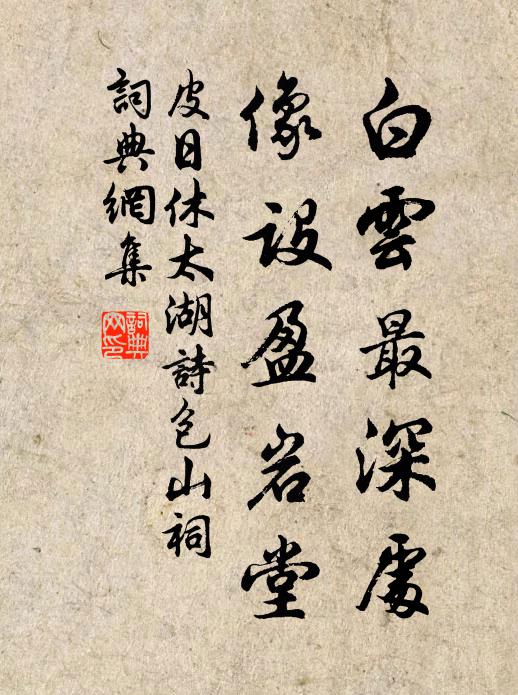 白雲最深處
像設盈岩堂
皮日休太湖詩包山祠
詞典網集
詞典網印